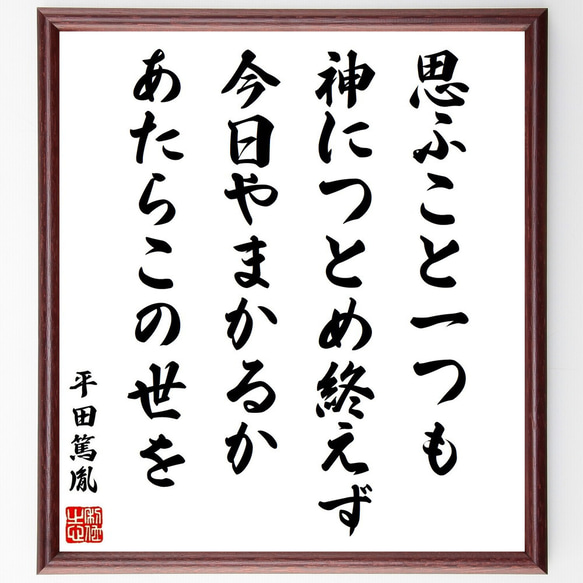 思ふこと一つも
神につとめ終えず
今日やまかるか
あたらこの世を
平田篤胤